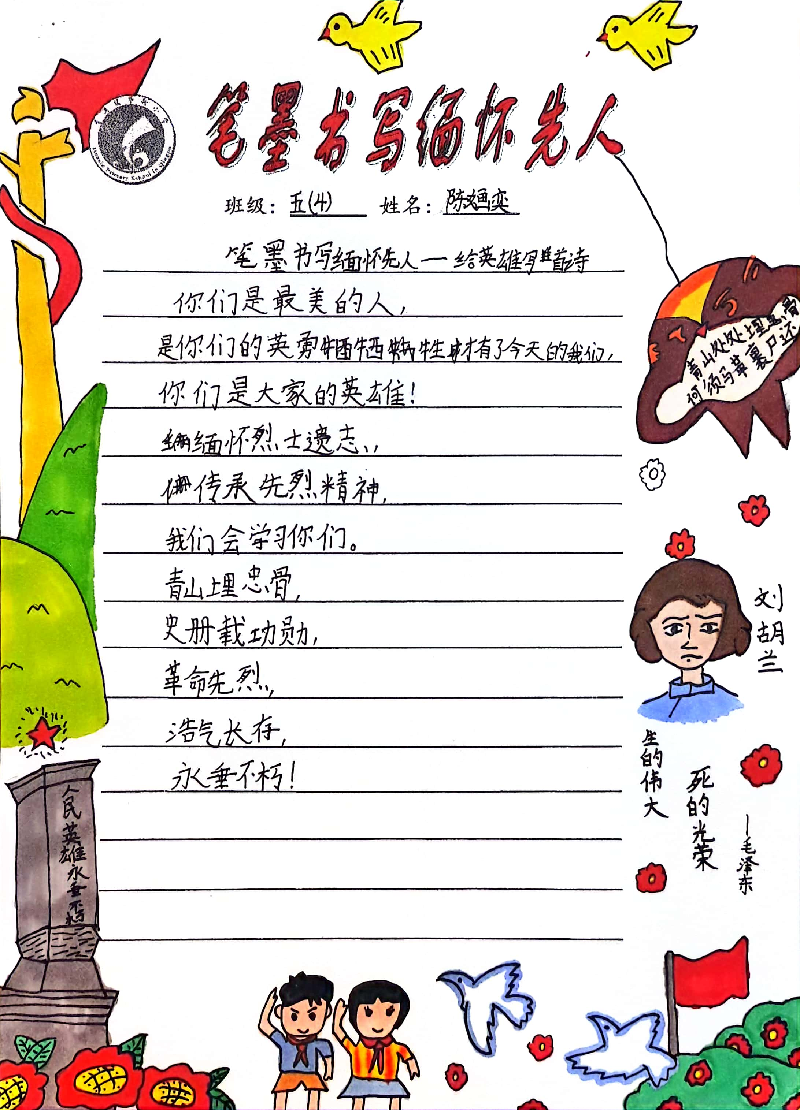 笔墨书写缅怀先人
班级：五(4) 姓名：陈奕
笔墨书写缅怀先人一给英雄写首诗
你们是最美的人，
是你们的英勇牺牲才有了今天的我们，
你们是大家的英雄！
缅怀烈士遗志，
传承先烈精神，
我们会学习你们。
青山埋忠骨，
史册载功勋，
革命先烈，
浩气长存，
永垂不朽！
青山处处埋忠骨
何须马革裹尸还
刘胡兰
生的伟大
死的光荣
—毛泽东
人民英雄永垂不朽